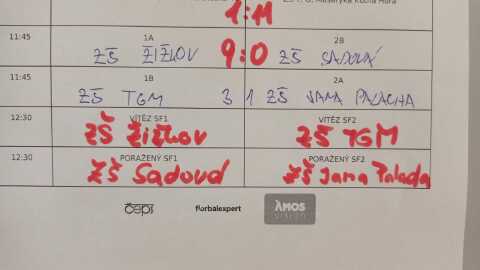 1:11
Masaryka Kutná Hora
11:45 1A 2B
ZŠ ŽIŽKOV 9:0 ZŠ SADOVÁ
11:45 1B 2A
ZŠ TGM 3 1 ZŠ JANA PALACHA
12:30 VÍTĚZ SF1 VÍTĚZ SF2
ZŠ Žižkov ZŠ TGM
12:30 PORAŽENÝ SF1 PORAŽENÝ SF2
ZŠ Sadová ZŠ Jana Palacha
čeps florbalexpert ÁMOS
VISION